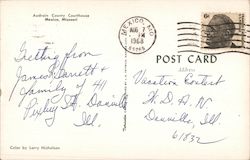 Audrain County Courthouse
Mexico, Missouri
MEXICO, MO.
AUG
PM
1968
65265
6¢
POST CARD
Address
Greetings from
James Garrett &
family of 41
Pixley St. Danville
Ill.
Vacation Contest
W.D.A.N
Danville, Ill.
61832
Color by Larry Nicholson